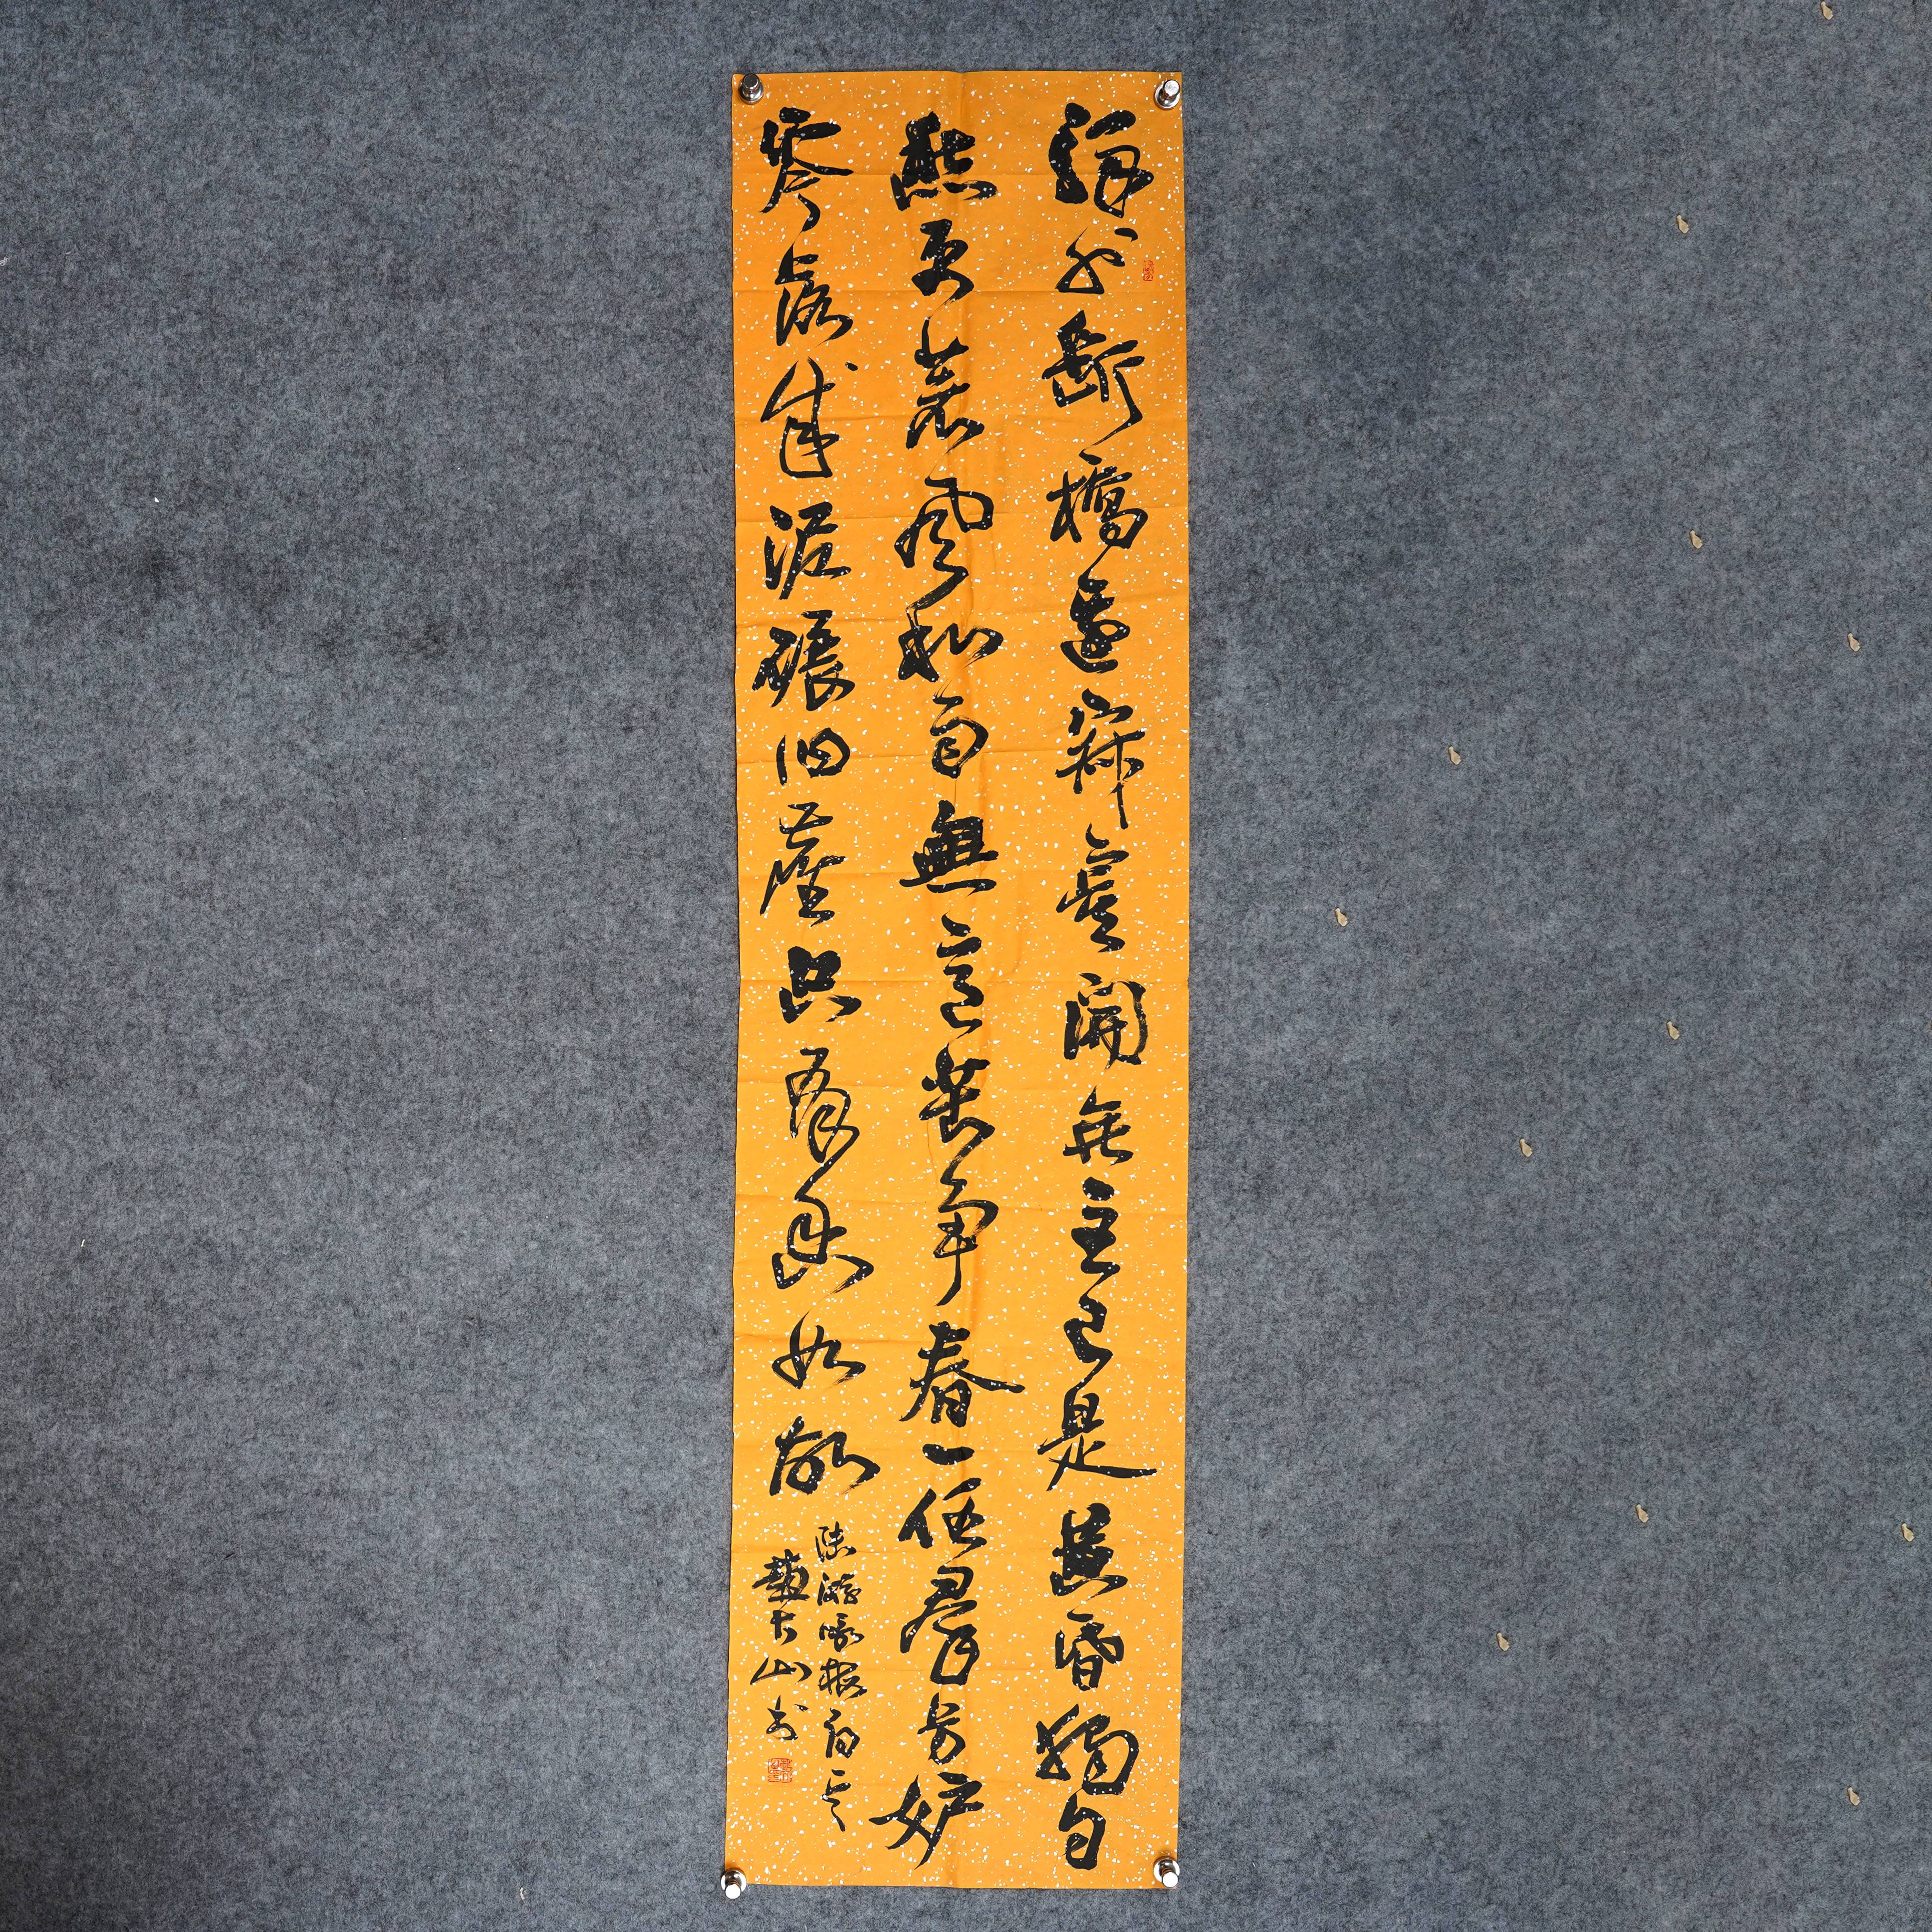 驛外斷橋邊寂寞開無主已是黃昏獨自
愁更著風和雨無意苦争春一任羣芳妒
零落成泥碾作塵只有香如故
陸游咏梅詞
山书